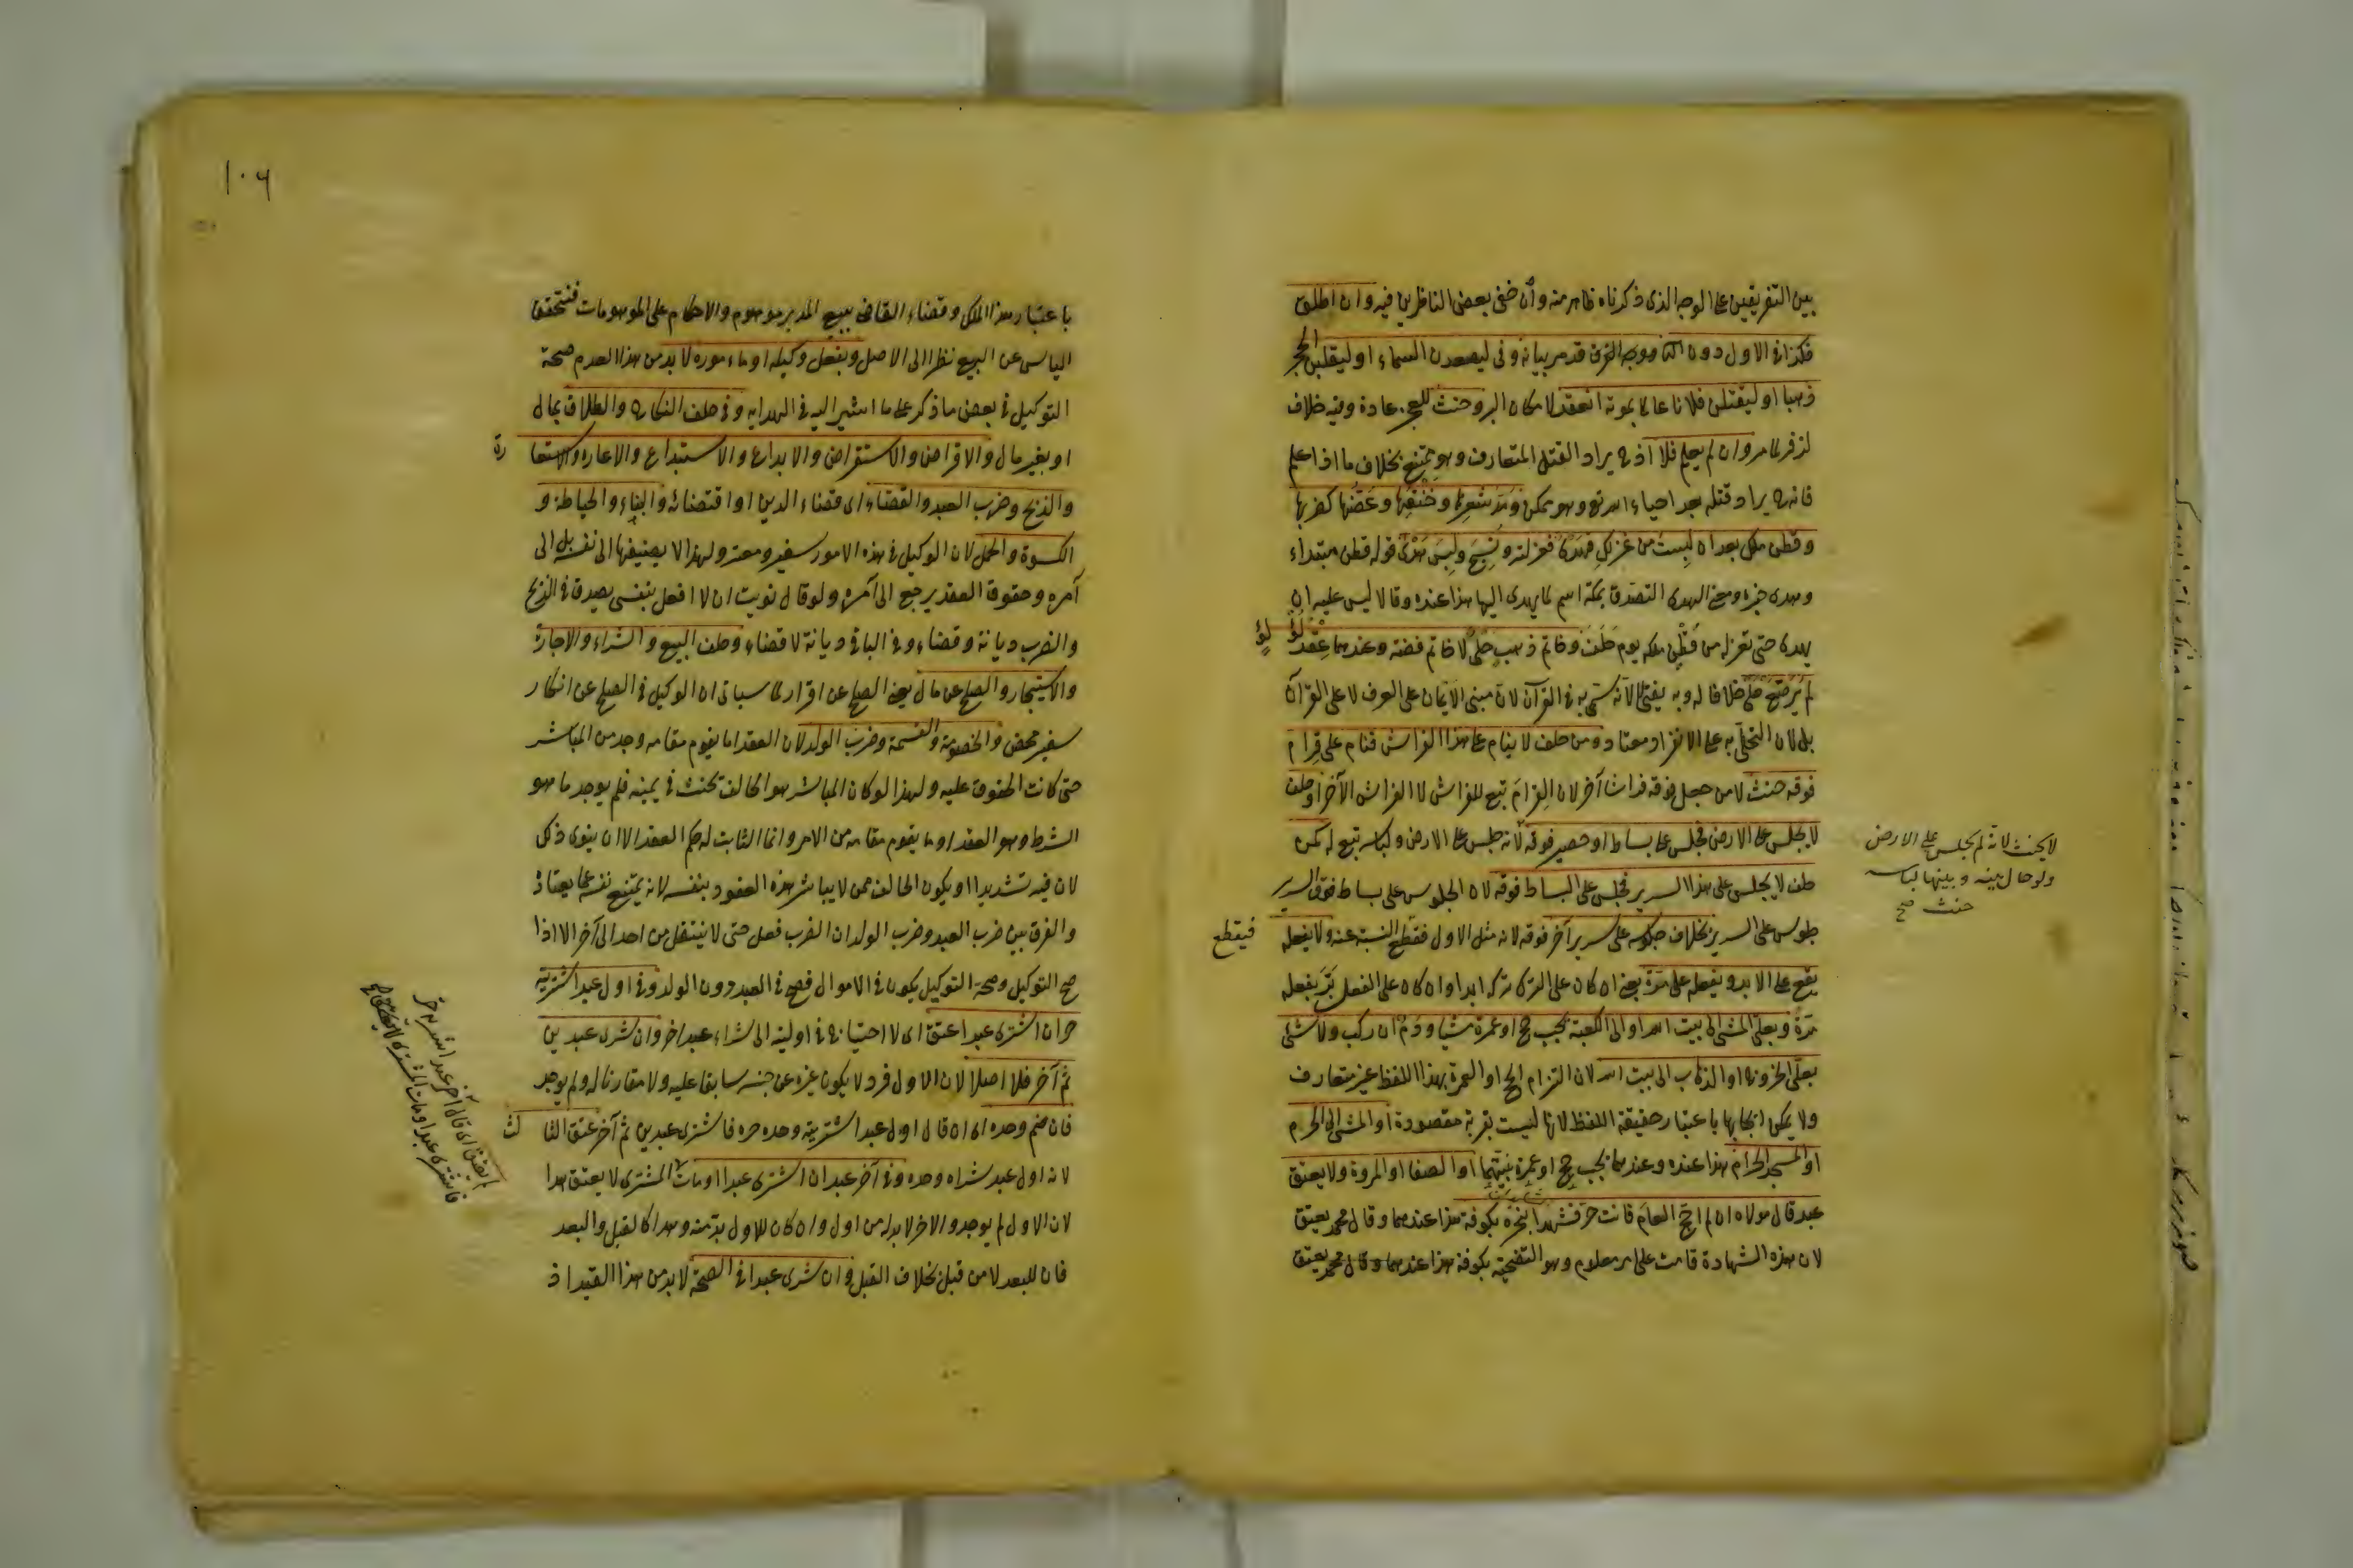 بين التفريقين على الوجه الذى ذكرناه ظاهر منه وان خفى بعض الناظرين فيه وان اطلق
فكذا فى الاول دون الثا ووجه الفرق قد مر بيانه وفى ليصعدن السماء او ليقلبن الحجر
ذهبا او ليقتلن فلانا عالما بموته انعقد لامكان البر وحنث للعجز عادة وفيه خلاف
لزفر لما مر وان لم يعلم فلا اذ ح يراد القتل المتعارف وهو ممتنع بخلاف ما اذا علم
فانه ح يراد قتله بعد احياء الله تع وهو ممكن ومد شعرها وخنقها وعضها كضربها
وقطن ملكه بعد ان لبست من غزلك فهدى فغزلته ونسج ولبس هدى قوله قطن مبتداء
وهدى خبره ومعنى الهدى التصدق بمكة اسم لما يهدى اليها هذا عنده وقالا ليس عليه ان
يهدى حتى تغزله من قطن ملكه يوم حلف وخاتم ذهب حلى لا خاتم فضة وعندهما عقد لؤلؤ
لم يرصع حلى خلافا له وبه يفتى لا لانه سمى به فى القرآن لان مبنى الايمان على العرف لا على القرآن
بل لان التحلى به على الانفراد معتاد ومن حلف لا ينام على هذا الفراش فنام على قرام
فوقه حنث لا من جعل فوقه فراشا آخر لان القرام تبع للفراش لا الفراش الآخر او حلف
لا يجلس على الارض فجلس على بساط او حصير فوقه لانه جلس على الارض ولباسه تبع له كمن
حلف لا يجلس على هذا السرير فجلس على البساط فوقه لان الجلوس على بساط فوق السرير
جلوس على السرير بخلاف جلوسه على سرير آخر فوقه لانه مثل الاول فقطع النسبة عنه ولا يفعله
فيقطع
يقع على الابد ويفعله على مرة يعنى ان كان على الترك تركه ابدا وان كان على الفعل بر بفعله
مرة وبعلى المشى الى بيت الله او الى الكعبة يجب حج او عمرة مشيا ودم ان ركب ولا شئى
بعلى الخروج او الذهاب الى بيت الله لان التزام الحج او العمرة بهذا اللفظ غير متعارف
ولا يمكن ايجابها باعتبار حقيقة اللفظ لانها ليست بقربة مقصودة او المشى الى الحرم
او المسجد الحرام هذا عنده وعندهما يجب حج او عمرة او الصفا او المروة ولا يعتق
عبد قال مولاه ان لم احج العام فانت حر فشهدا بنحره بكوفة هذا عندهما وقال محمد يعتق
لان هذه الشهادة قامت على امر معلوم وهو التضحية بكوفة هذا عندهما وقال محمد يعتق
لا يحنث لانه لم يجلس على الارض
ولو حال بينه وبينها لباسه
حنث صح
١٠٦
باعتبار هذا الملك وقضاء القاضى ببيع المدبر موهوم والاحكام على الموهومات فتحقق
الياس عن البيع نظرا الى الاصل وبفعل وكيله او ماءموره لا بد من هذا لعدم صحة
التوكيل فى بعض ما ذكر على ما اشير اليه فى الهدايه وفى حلف النكاح والطلاق بمال
او بغير مال والاقراض والاستقراض والايداع والاستيداع والاعارة والاستعارة
والذبح وضرب العبد والقضاء اى قضاء الدين او اقتضائه والبناء والخياطة و
الكسوة والحمل لان الوكيل فى هذه الامور سفير ومعبر ولهذا لا يضيفها الى نفسه بل الى
آمره وحقوق العقد يرجع الى آمره ولو قال نويت ان لا افعل بنفسى يصدق فى الذبح
والضرب ديانة وقضاء وفى الباقى ديانة لا قضاء وحلف البيع والشراء والاجارة
والاستيجار والصلح عن مال يعنى الصلح عن اقرار لما سياتى ان الوكيل فى الصلح عن انكار
سفير محض والخصومة والقسمة وضرب الولد لان العقد اما يقوم مقامه وجد من المباشر
حتى كانت الحقوق عليه ولهذا لو كان المباشر هو الحالف يحنث فى يمينه فلم يوجد ما هو
الشرط وهو العقد او ما يقوم مقامه من الامر وانما الثابت له حكم العقد الا ان ينوى ذلك
لان فيه تشديدا او يكون الحالف ممن لا يباشر هذه العقود بنفسه لانه يمتنع نفسه عما يعتاد
والفرق بين ضرب العبد وضرب الولد ان الضرب فعل حتى لا ينتقل من احد الى آخر الا اذا
صح التوكيل وصحة التوكيل يكون فى الاموال فصح فى العبد دون الولد وفى اول عبد اشتريته
حر ان اشترى عبدا عتق اى لا احتياج فى اوليته الى شراء عبد اخر وان شرى عبدين
ثم آخر فلا اصلا لان الاول فرد لا يكون غيره عن جنسه سابقا عليه ولا مقارنا له ولم يوجد
فان ضم وحده اى ان قال اول عبد اشتريته وحده حر فاشترى عبدين ثم آخر عتق الثالث
لانه اول عبد شراه وحده وفى آخر عبد ان اشترى عبدا ومات المشترى لا يعتق هذا
لان الاول لم يوجد والاخر لا بد له من اول وان كان للاول بد منه وهذا كالقبل والبعد
فان للبعد لا من قبل بخلاف القبل وان شرى عبدا فى الصحة لا بد من هذا القيد اذ